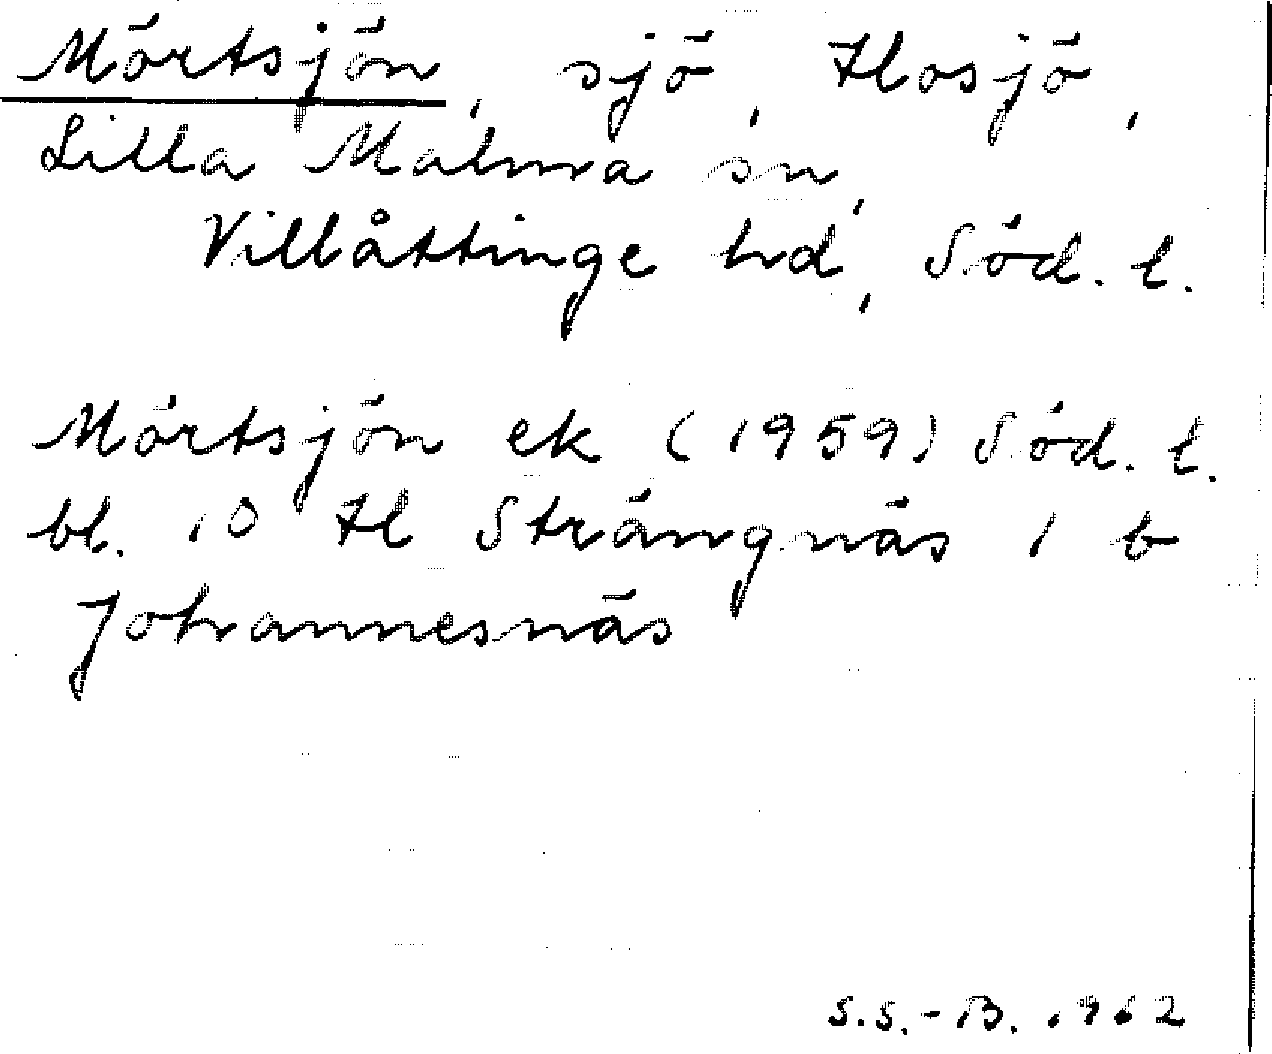 Mörtsjön, sjö, Hosjö,
Lilla Malma sn,
Villåttinge hd, Söd. l.
Mörtsjön ek (1959) Söd. l.
bl. 10 H Strängnäs 1 b
Johannesnäs
S.S.-B. 1962